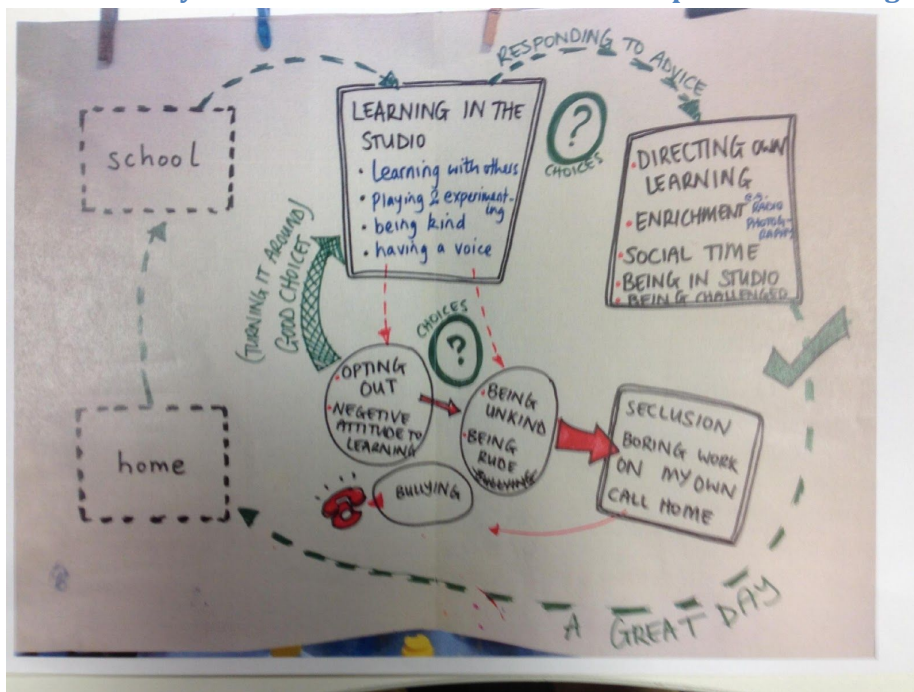 RESPONDING TO ADVICE
school
LEARNING IN THE
STUDIO
• Learning with others
• playing & experiment-
ing
• being kind
• having a voice
?
CHOICES
• DIRECTING OWN
LEARNING
• ENRICHMENT e.g.
RADIO
PHOTOG-
RAPHY
• SOCIAL TIME
• BEING IN STUDIO
• BEING CHALLENGED
(TURNING IT AROUND)
GOOD CHOICES
CHOICES
?
• OPTING
OUT
• NEGETIVE
ATTITUDE TO
LEARNING
• BEING
UNKIND
• BEING
RUDE
BULLYING
SECLUSION
BORING WORK
ON MY OWN
CALL HOME
home
BULLYING
A GREAT DAY